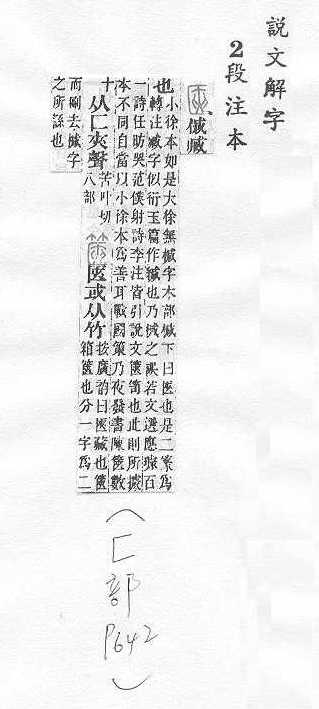 說文解字
2段注本
椷臧
也小徐本如是大徐無椷字木部椷下曰匧也是二篆爲
轉注臧字似衍玉篇作緘也乃椷之誤若文選應璩百
一詩任昉哭范僕射詩李注皆引說文篋笥也此則所據
本不同自當以小徐本爲善耳戰國策乃夜發書陳篋數
十从匚夾聲苦叶切八部篋匧或从竹按廣韵曰匧藏也篋
箱篋也分一字爲二
而刪去椷字
之所繇也
(匚部P642)